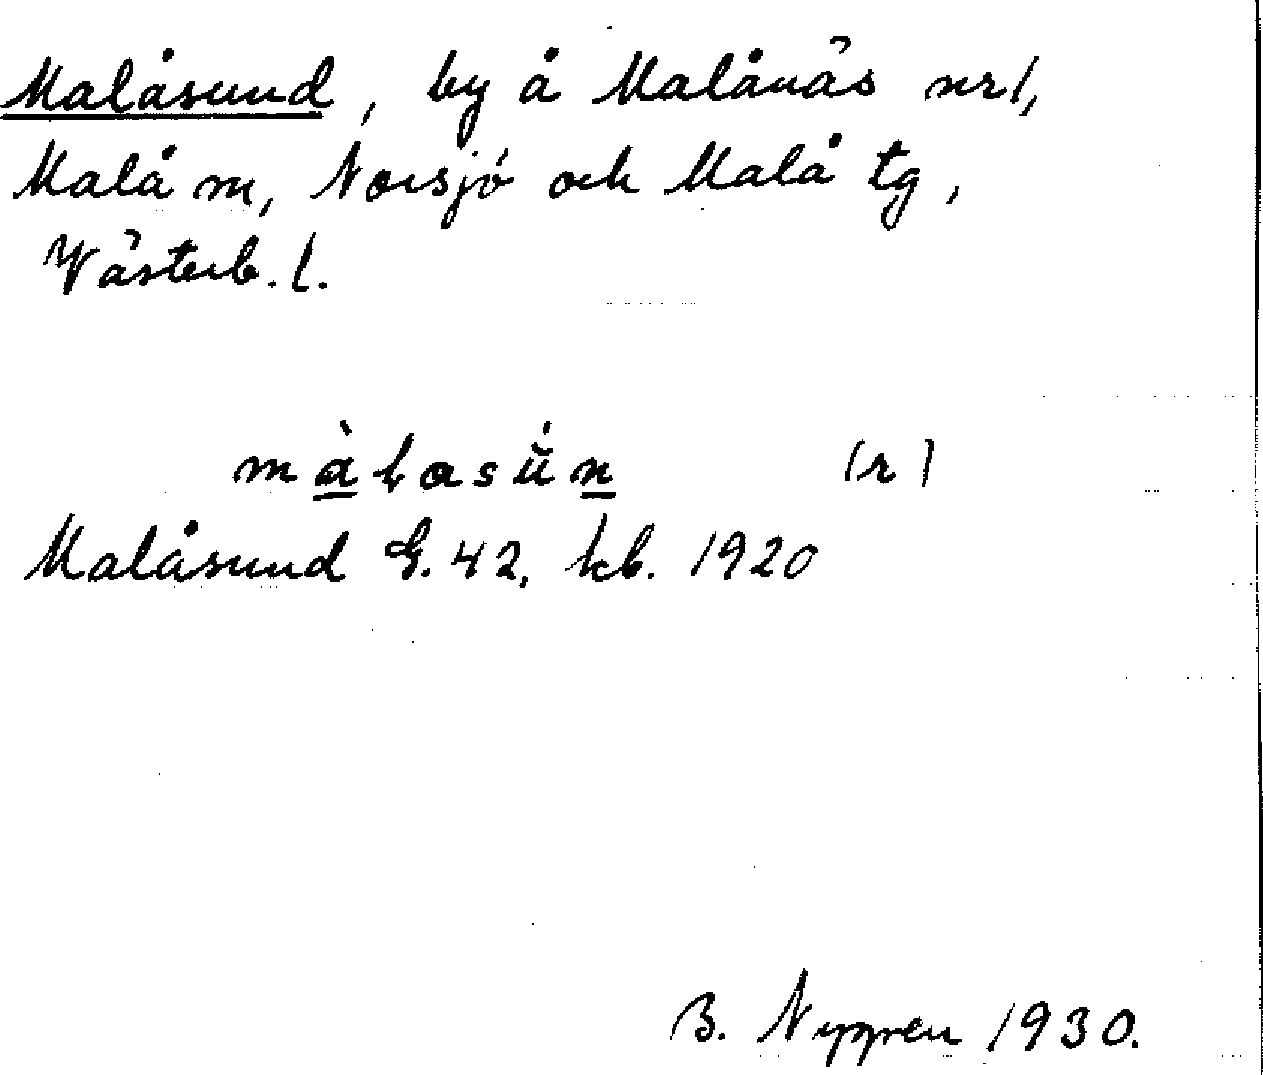 Malåsund, by å Malånäs nr 1,
Malå sn, Norsjö och Malå tg,
Västerb. l.
màɬasún (r)
Malåsund G. 42, kb. 1920
B. 1930.